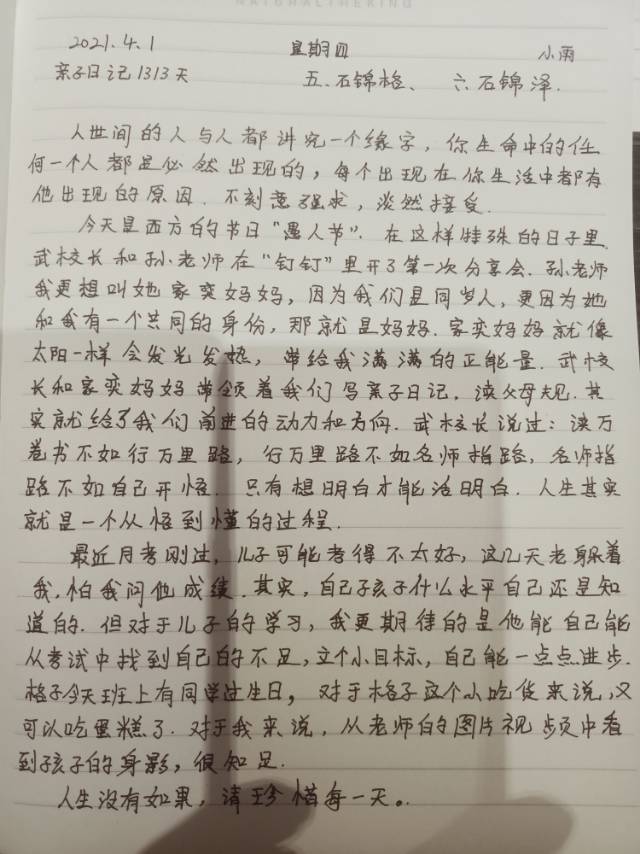 NATURALTHEKING
2021.4.1 星期四 小雨
亲子日记1313天 五.石锦格、 六石锦泽.
人世间的人与人都讲究一个缘字，你生命中的任
何一个人都是必然出现的，每个出现在你生活中都有
他出现的原因.不刻意强求，淡然接受.
今天是西方的节日“愚人节”.在这样特殊的日子里
武校长和孙老师在“钉钉”里开了第一次分享会.孙老师
我更想叫她家奕妈妈，因为我们是同岁人，更因为她
和我有一个共同的身份，那就是妈妈.家奕妈妈就像
太阳一样会发光发热，带给我满满的正能量.武校
长和家奕妈妈带领着我们写亲子日记，读父母规.其
实就给了我们前进的动力和方向.武校长说过：读万
卷书不如行万里路，行万里路不如名师指路，名师指
路不如自己开悟.只有想明白才能活明白.人生其实
就是一个从悟到懂的过程.
最近月考刚过，儿子可能考得不太好，这几天老躲着
我，怕我问他成绩.其实，自己孩子什么水平自己还是知
道的.但对于儿子的学习，我更期待的是他能自己能
从考试中找到自己的不足，立个小目标，自己能一点点进步.
格子今天班上有同学过生日，对于格子这个小吃货来说，又
可以吃蛋糕了.对于我来说，从老师的图片视频中看
到孩子的身影，很知足.
人生没有如果，请珍惜每一天。.